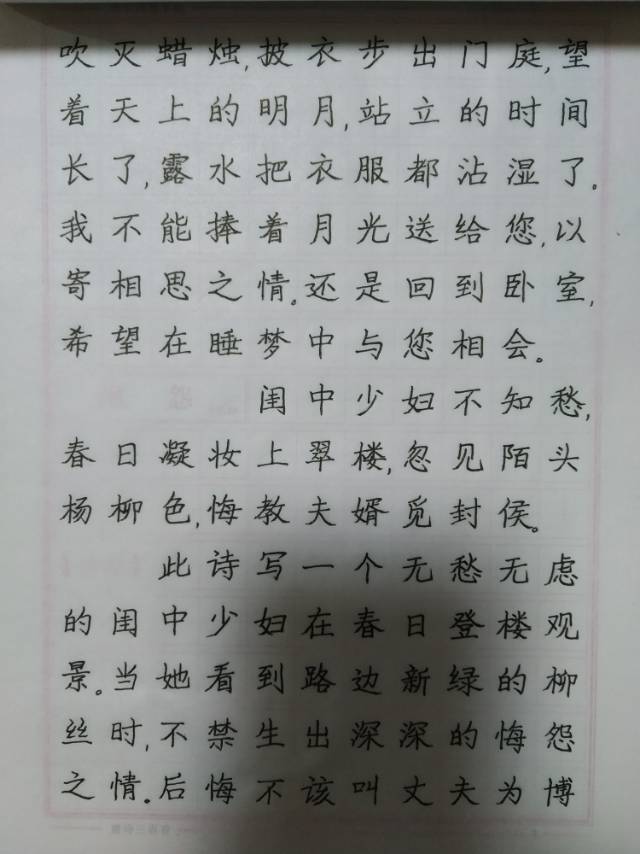 吹灭蜡烛,披衣步出门庭,望
着天上的明月,站立的时间
长了,露水把衣服都沾湿了。
我不能捧着月光送给您,以
寄相思之情。还是回到卧室,
希望在睡梦中与您相会。
闺中少妇不知愁,
春日凝妆上翠楼,忽见陌头
杨柳色,悔教夫婿觅封侯。
此诗写一个无愁无虑
的闺中少妇在春日登楼观
景。当她看到路边新绿的柳
丝时,不禁生出深深的悔怨
之情。后悔不该叫丈夫为博